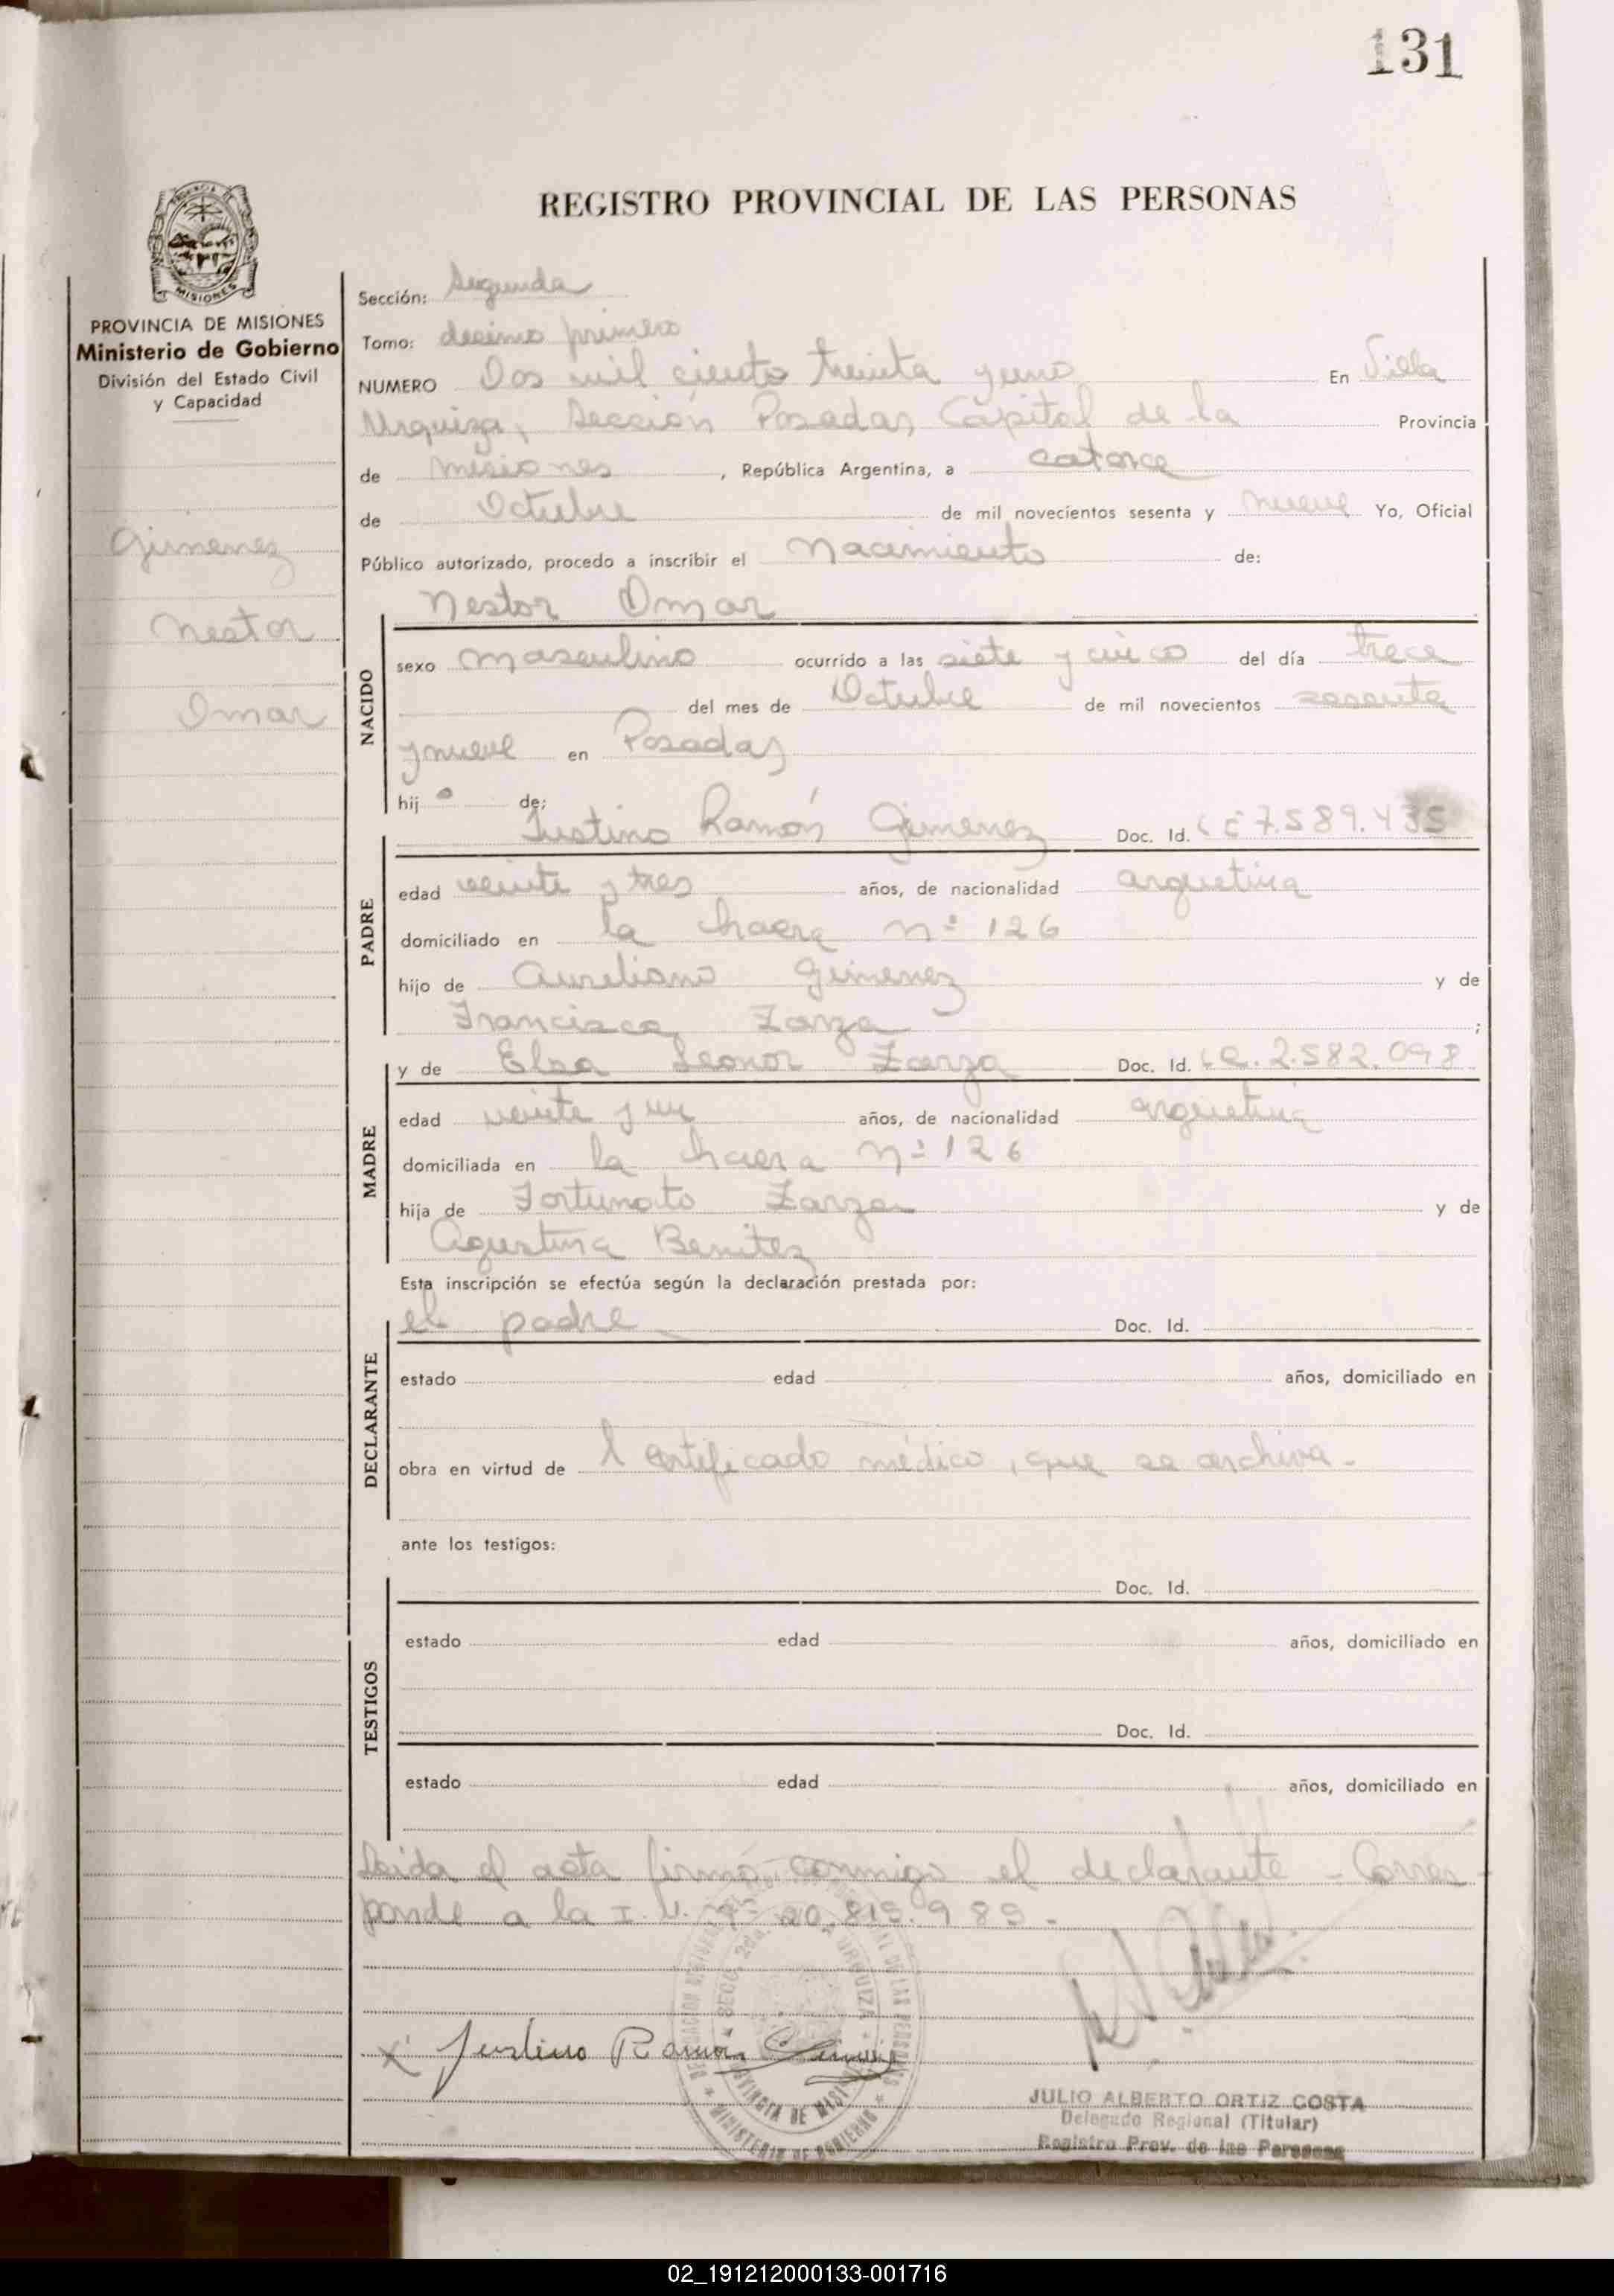 131
REGISTRO PROVINCIAL DE LAS PERSONAS
MISIONES
PROVINCIA DE MISIONES
Ministerio de Gobierno
División del Estado Civil
y Capacidad
Gimenez
Nestor
Omar
Sección: Segunda
Tomo: decimo primero
NUMERO Dos mil ciento treinta y uno En Villa
Urquiza, Sección Posadas Capital de la Provincia
de Misiones, República Argentina, a catorce
de Octubre de mil novecientos sesenta y nueve Yo, Oficial
Público autorizado, procedo a inscribir el Nacimiento de:
Nestor Omar
NACIDO
sexo masculino ocurrido a las siete y cinco del día trece
del mes de Octubre de mil novecientos sesenta
y nueve en Posadas
hijo de:
Justino Ramón Gimenez Doc. Id. 7.589.435
PADRE
edad veinte y tres años, de nacionalidad argentina
domiciliado en la chacra nº 126
hijo de Aureliano Gimenez y de
Francisca Zarza ;
y de Elsa Leonor Zarza Doc. Id. 2.582.098
MADRE
edad veinte y un años, de nacionalidad argentina
domiciliada en la chacra nº 126
hija de Fortunato Zarza y de
Agustina Benitez
Esta inscripción se efectúa según la declaración prestada por:
el padre Doc. Id.
DECLARANTE
estado edad años, domiciliado en
obra en virtud de l certificado médico, que se archiva.
ante los testigos:
Doc. Id.
TESTIGOS
estado edad años, domiciliado en
Doc. Id.
estado edad años, domiciliado en
Leida el acta firmó conmigo el declarante - Corres-
ponde a la I. 20.815.989.-
x Justino Ramon Gimenez
JULIO ALBERTO ORTIZ COSTA
Delegado Regional (Titular)
Registro Prov. de las Personas
02_191212000133-001716